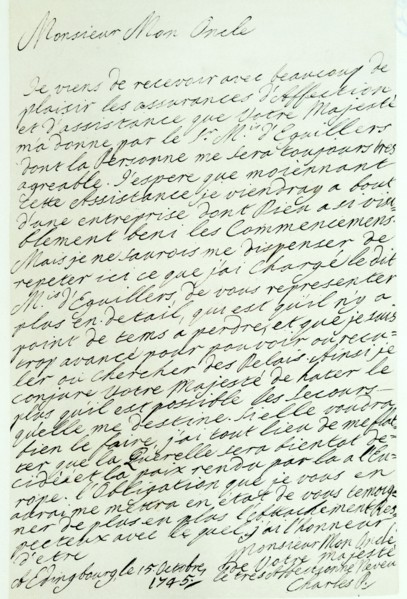 Monsieur Mon Oncle
Je viens de recevoir avec beaucoup de
plaisir les assurances d'Affection
et d'assistance que Votre Majesté
m'a donné par le Sr. Mis d'Eguillers
dont la Personne me sera toujours tres
agreable. J'espere que moiennant
cette Assistance je viendray a bout
d'une entreprise dont Dieu a si visi
blement beni les Commencemens.
Mais je ne saurois me dispenser de
repeter ici ce que j'ai Chargé le dit
Mis d'Eguillers de vous representer
plus en detail, qui est qu'il n'y a
point de tems a perdre, et que je suis
trop avancé pour pouvoir ou recu-
ler ou chercher des Delais. Ainsi je
conjure Votre Majesté de hater le
plus qu'il est possible les Secours
qu'elle me destine. Si elle voudra
bien le faire, j'ai tout lieu de me flat
ter que la Querelle sera bientot de-
cidée et la paix rendu par la a l'Eu-
rope. l'Obligation que je vous en
aurai me mettra en état de vous temoig-
ner de plus en plus l'attachement res-
pectueux avec le quel j'ai l'honneur
d'etre
Monsieur Mon Oncle
de Votre Majesté
a Edingbourg le 15 Octobre
1745
le tres affectionné Neveu
Charles P.